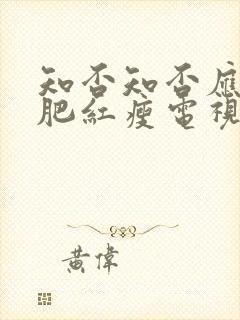 知否知否應
肥紅瘦電視
黃偉